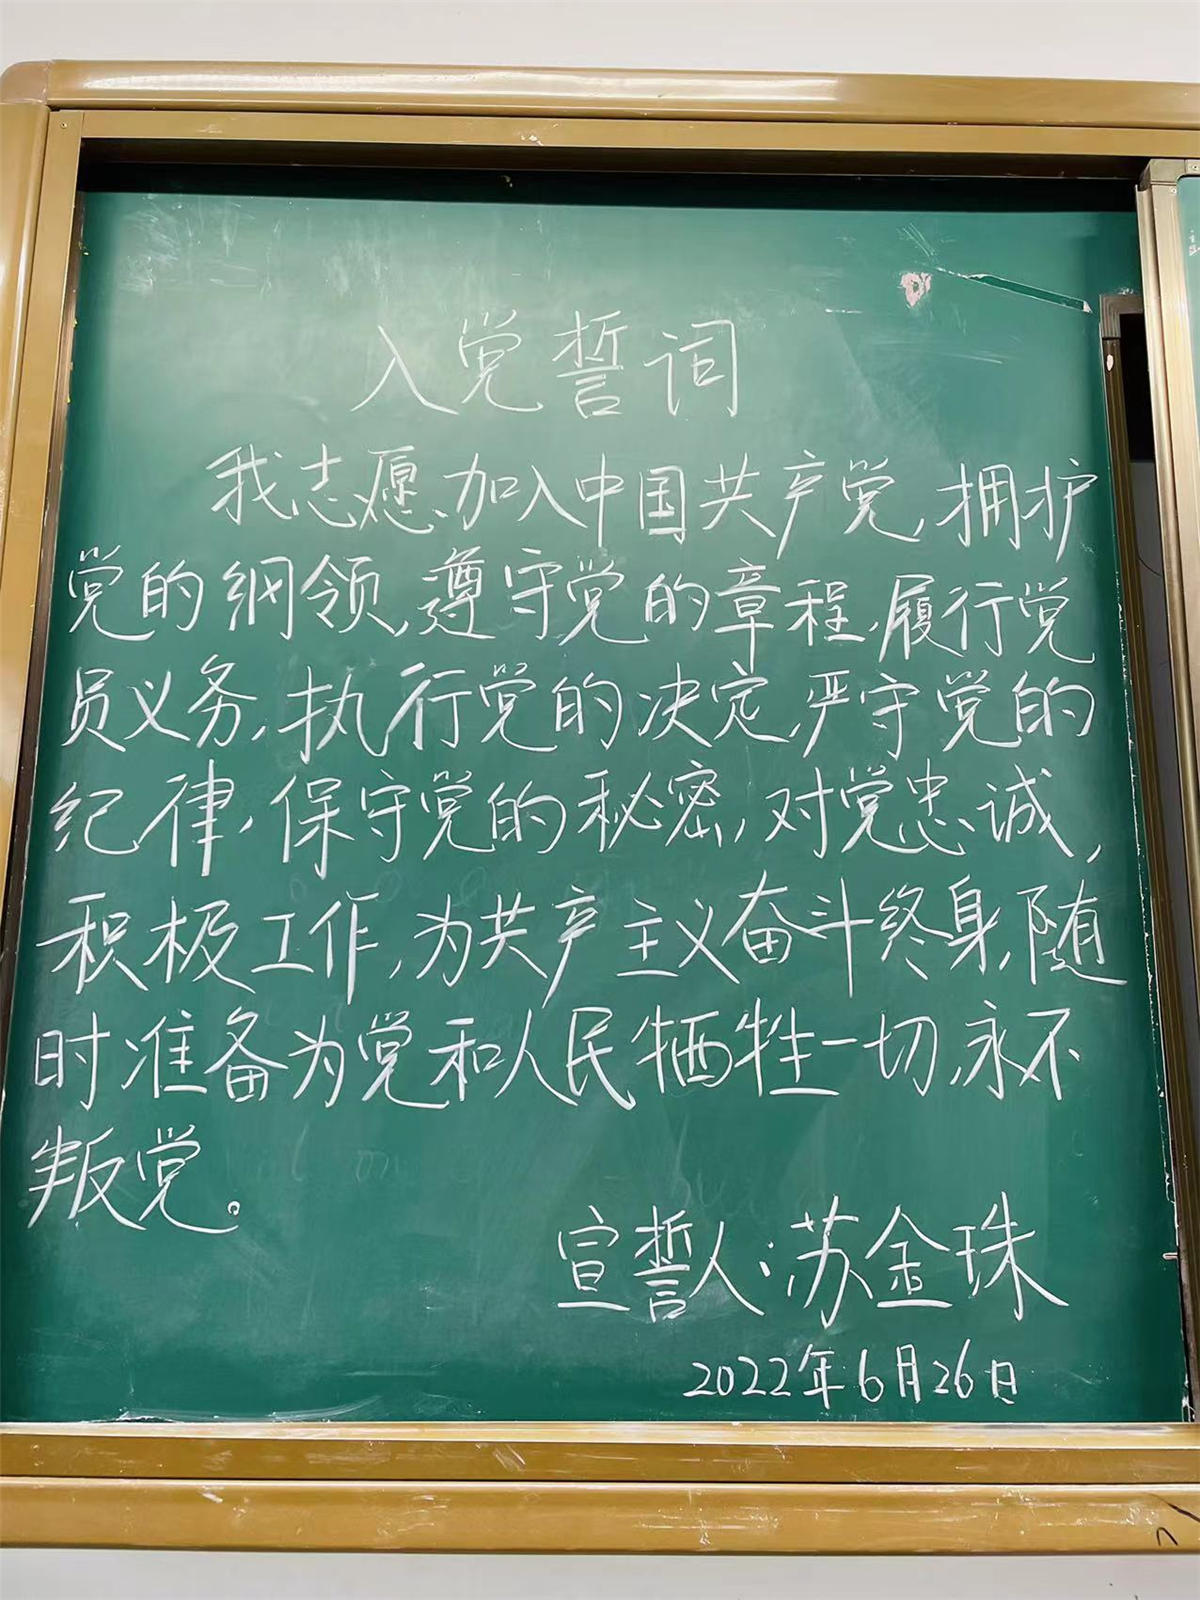 入党誓词
我志愿加入中国共产党,拥护
党的纲领,遵守党的章程,履行党
员义务,执行党的决定,严守党的
纪律,保守党的秘密,对党忠诚,
积极工作,为共产主义奋斗终身,随
时准备为党和人民牺牲一切,永不
叛党。
宣誓人:苏金珠
2022年6月26日